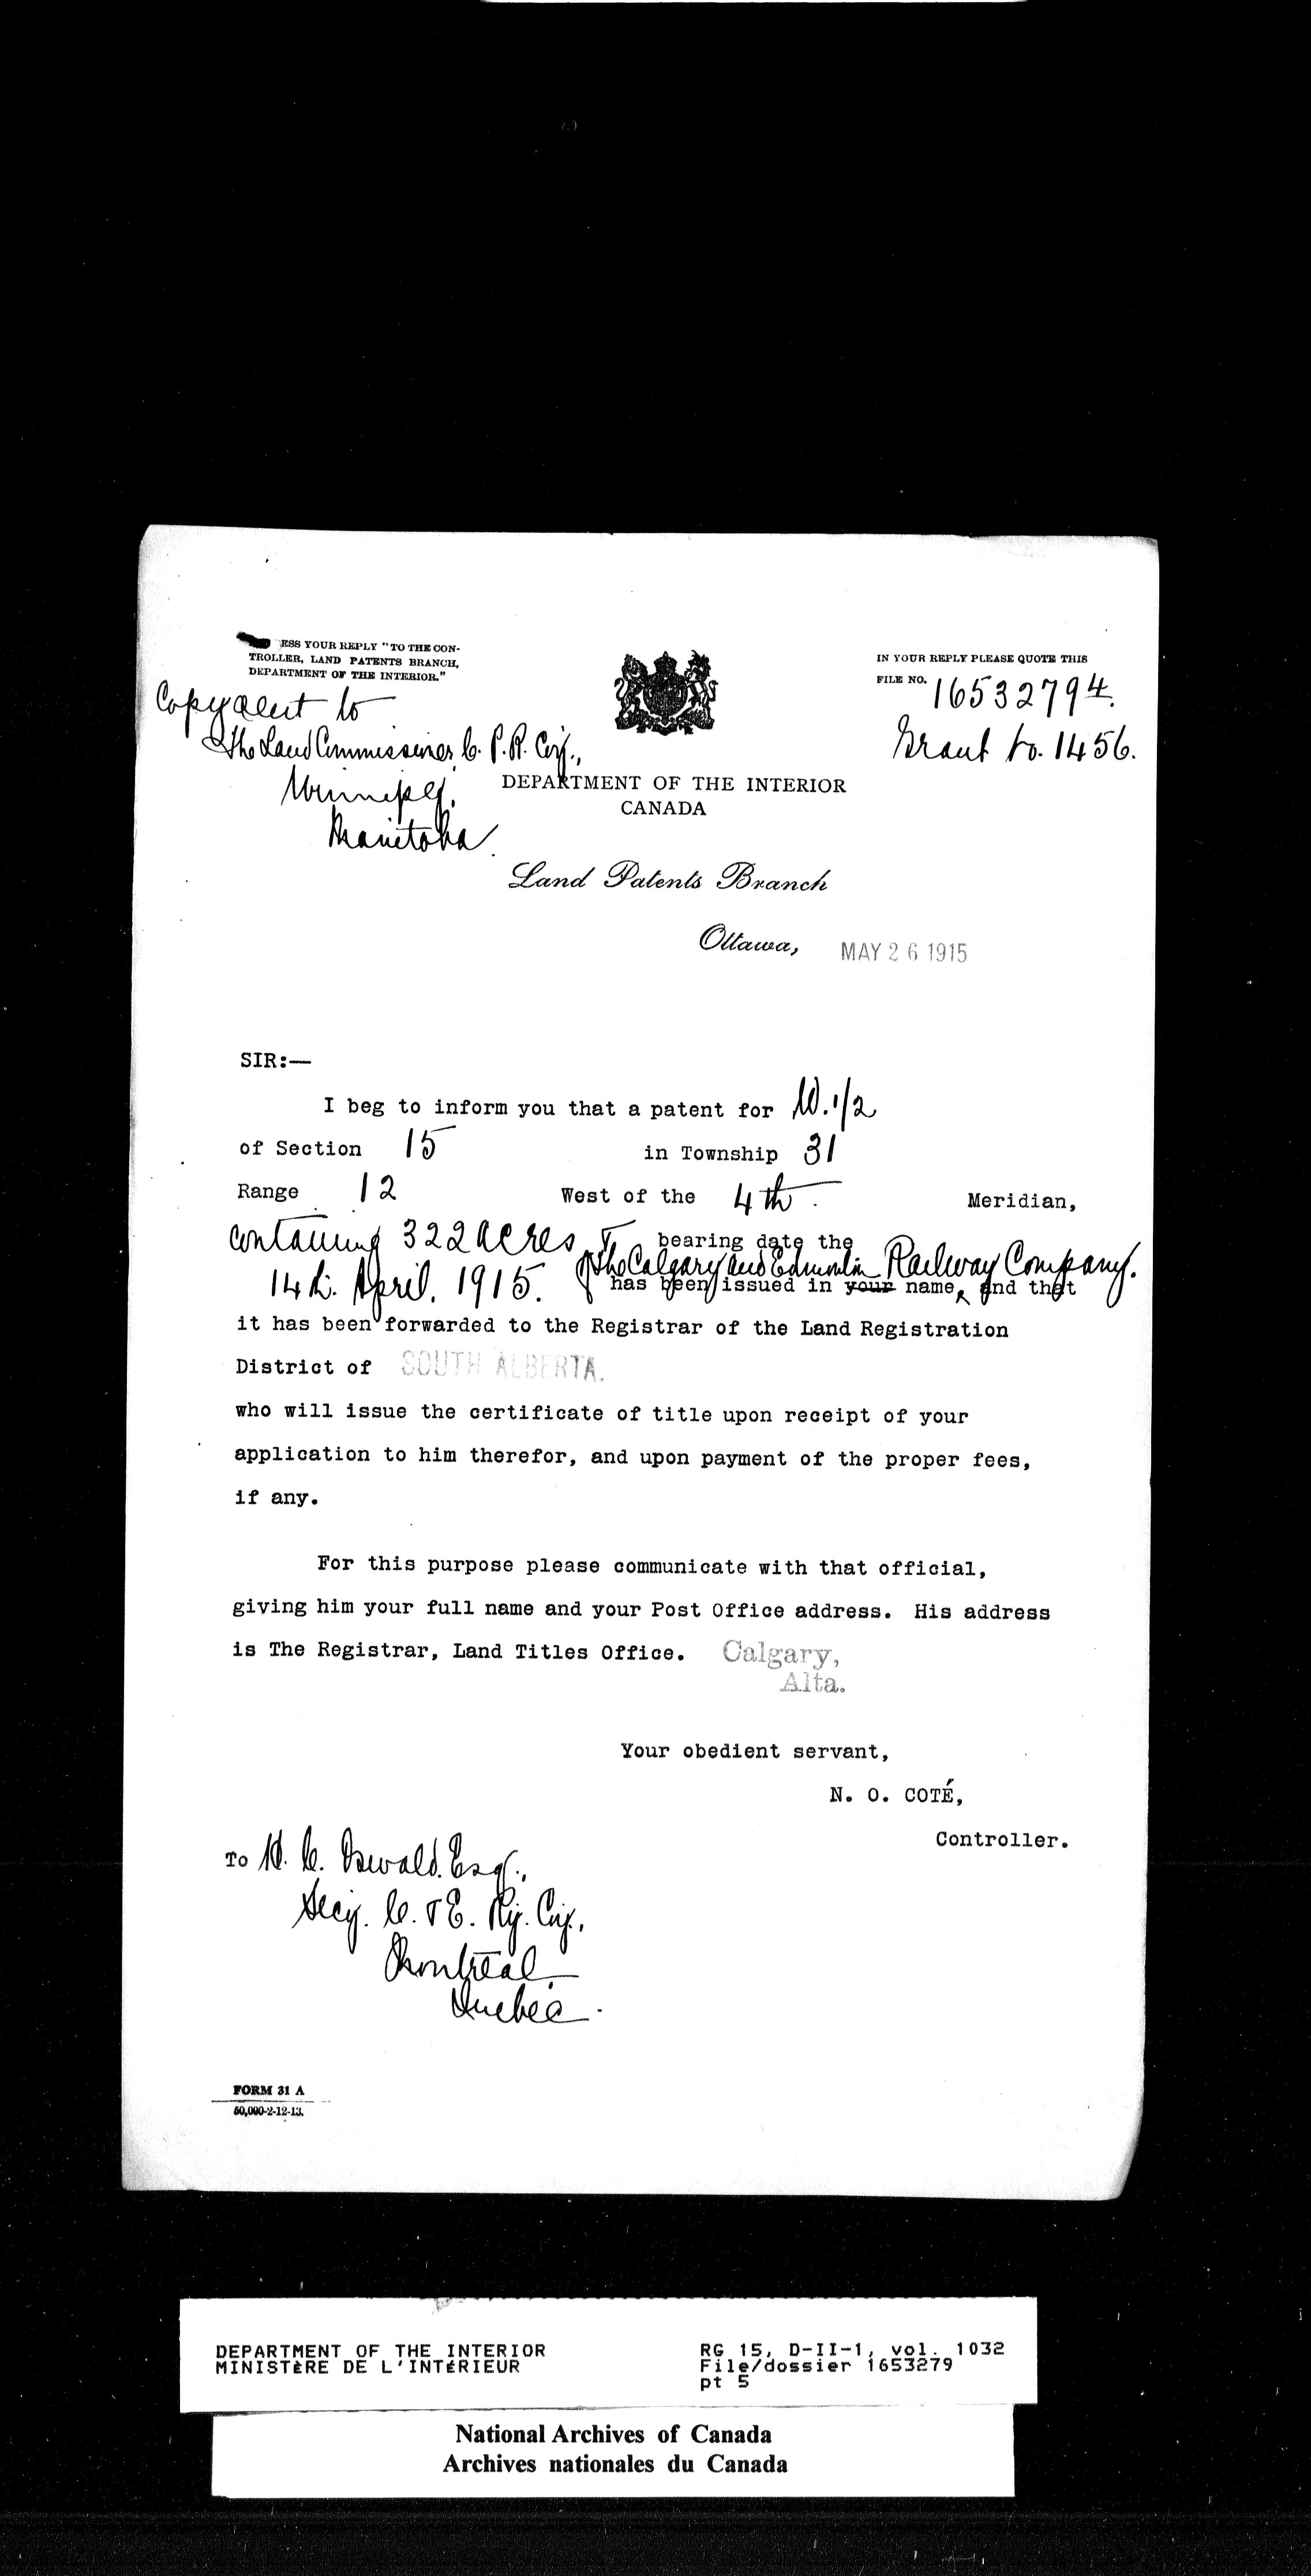 ESS YOUR REPLY "TO THE CON-
TROLLER, LAND PATENTS BRANCH,
DEPARTMENT OF THE INTERIOR."
IN YOUR REPLY PLEASE QUOTE THIS
FILE NO. 1653279 4.
Grant to. 1456.
Copy sent to
The Land Commissioner C. P. R. Coy.,
Winnipeg.
Manitoba.
DEPARTMENT OF THE INTERIOR
CANADA
Land Patents Branch
Ottawa, MAY 26 1915
SIR:—
I beg to inform you that a patent for W. 1/2
of Section 15 in Township 31
Range 12 West of the 4th. Meridian,
containing 322 acres bearing date the
of the Calgary and Edmonton Railway Company.
14th. April, 1915. has been issued in your name, and that
it has been forwarded to the Registrar of the Land Registration
District of SOUTH ALBERTA.
who will issue the certificate of title upon receipt of your
application to him therefor, and upon payment of the proper fees,
if any.
For this purpose please communicate with that official,
giving him your full name and your Post Office address. His address
is The Registrar, Land Titles Office. Calgary,
Alta.
Your obedient servant,
N. O. COTÉ,
Controller.
To H. C. Oswald. Esq.,
Secy. C. & E. Ry. Coy.,
Montreal.
Quebec.
FORM 31 A
50,000-2-12-13.
DEPARTMENT OF THE INTERIOR
MINISTÈRE DE L'INTÉRIEUR
RG 15, D-II-1, vol. 1032
File/dossier 1653279
pt 5
National Archives of Canada
Archives nationales du Canada